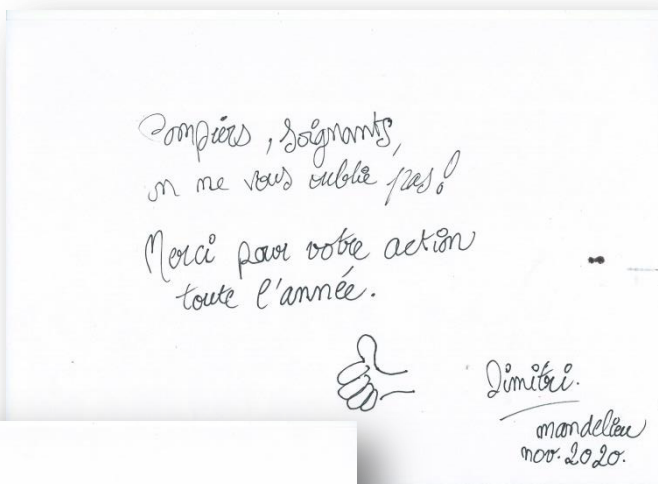 Pompiers, soignants,
on ne vous oublie pas !
Merci pour votre action
toute l'année.
Dimitri.
mandelieu
nov. 2020.